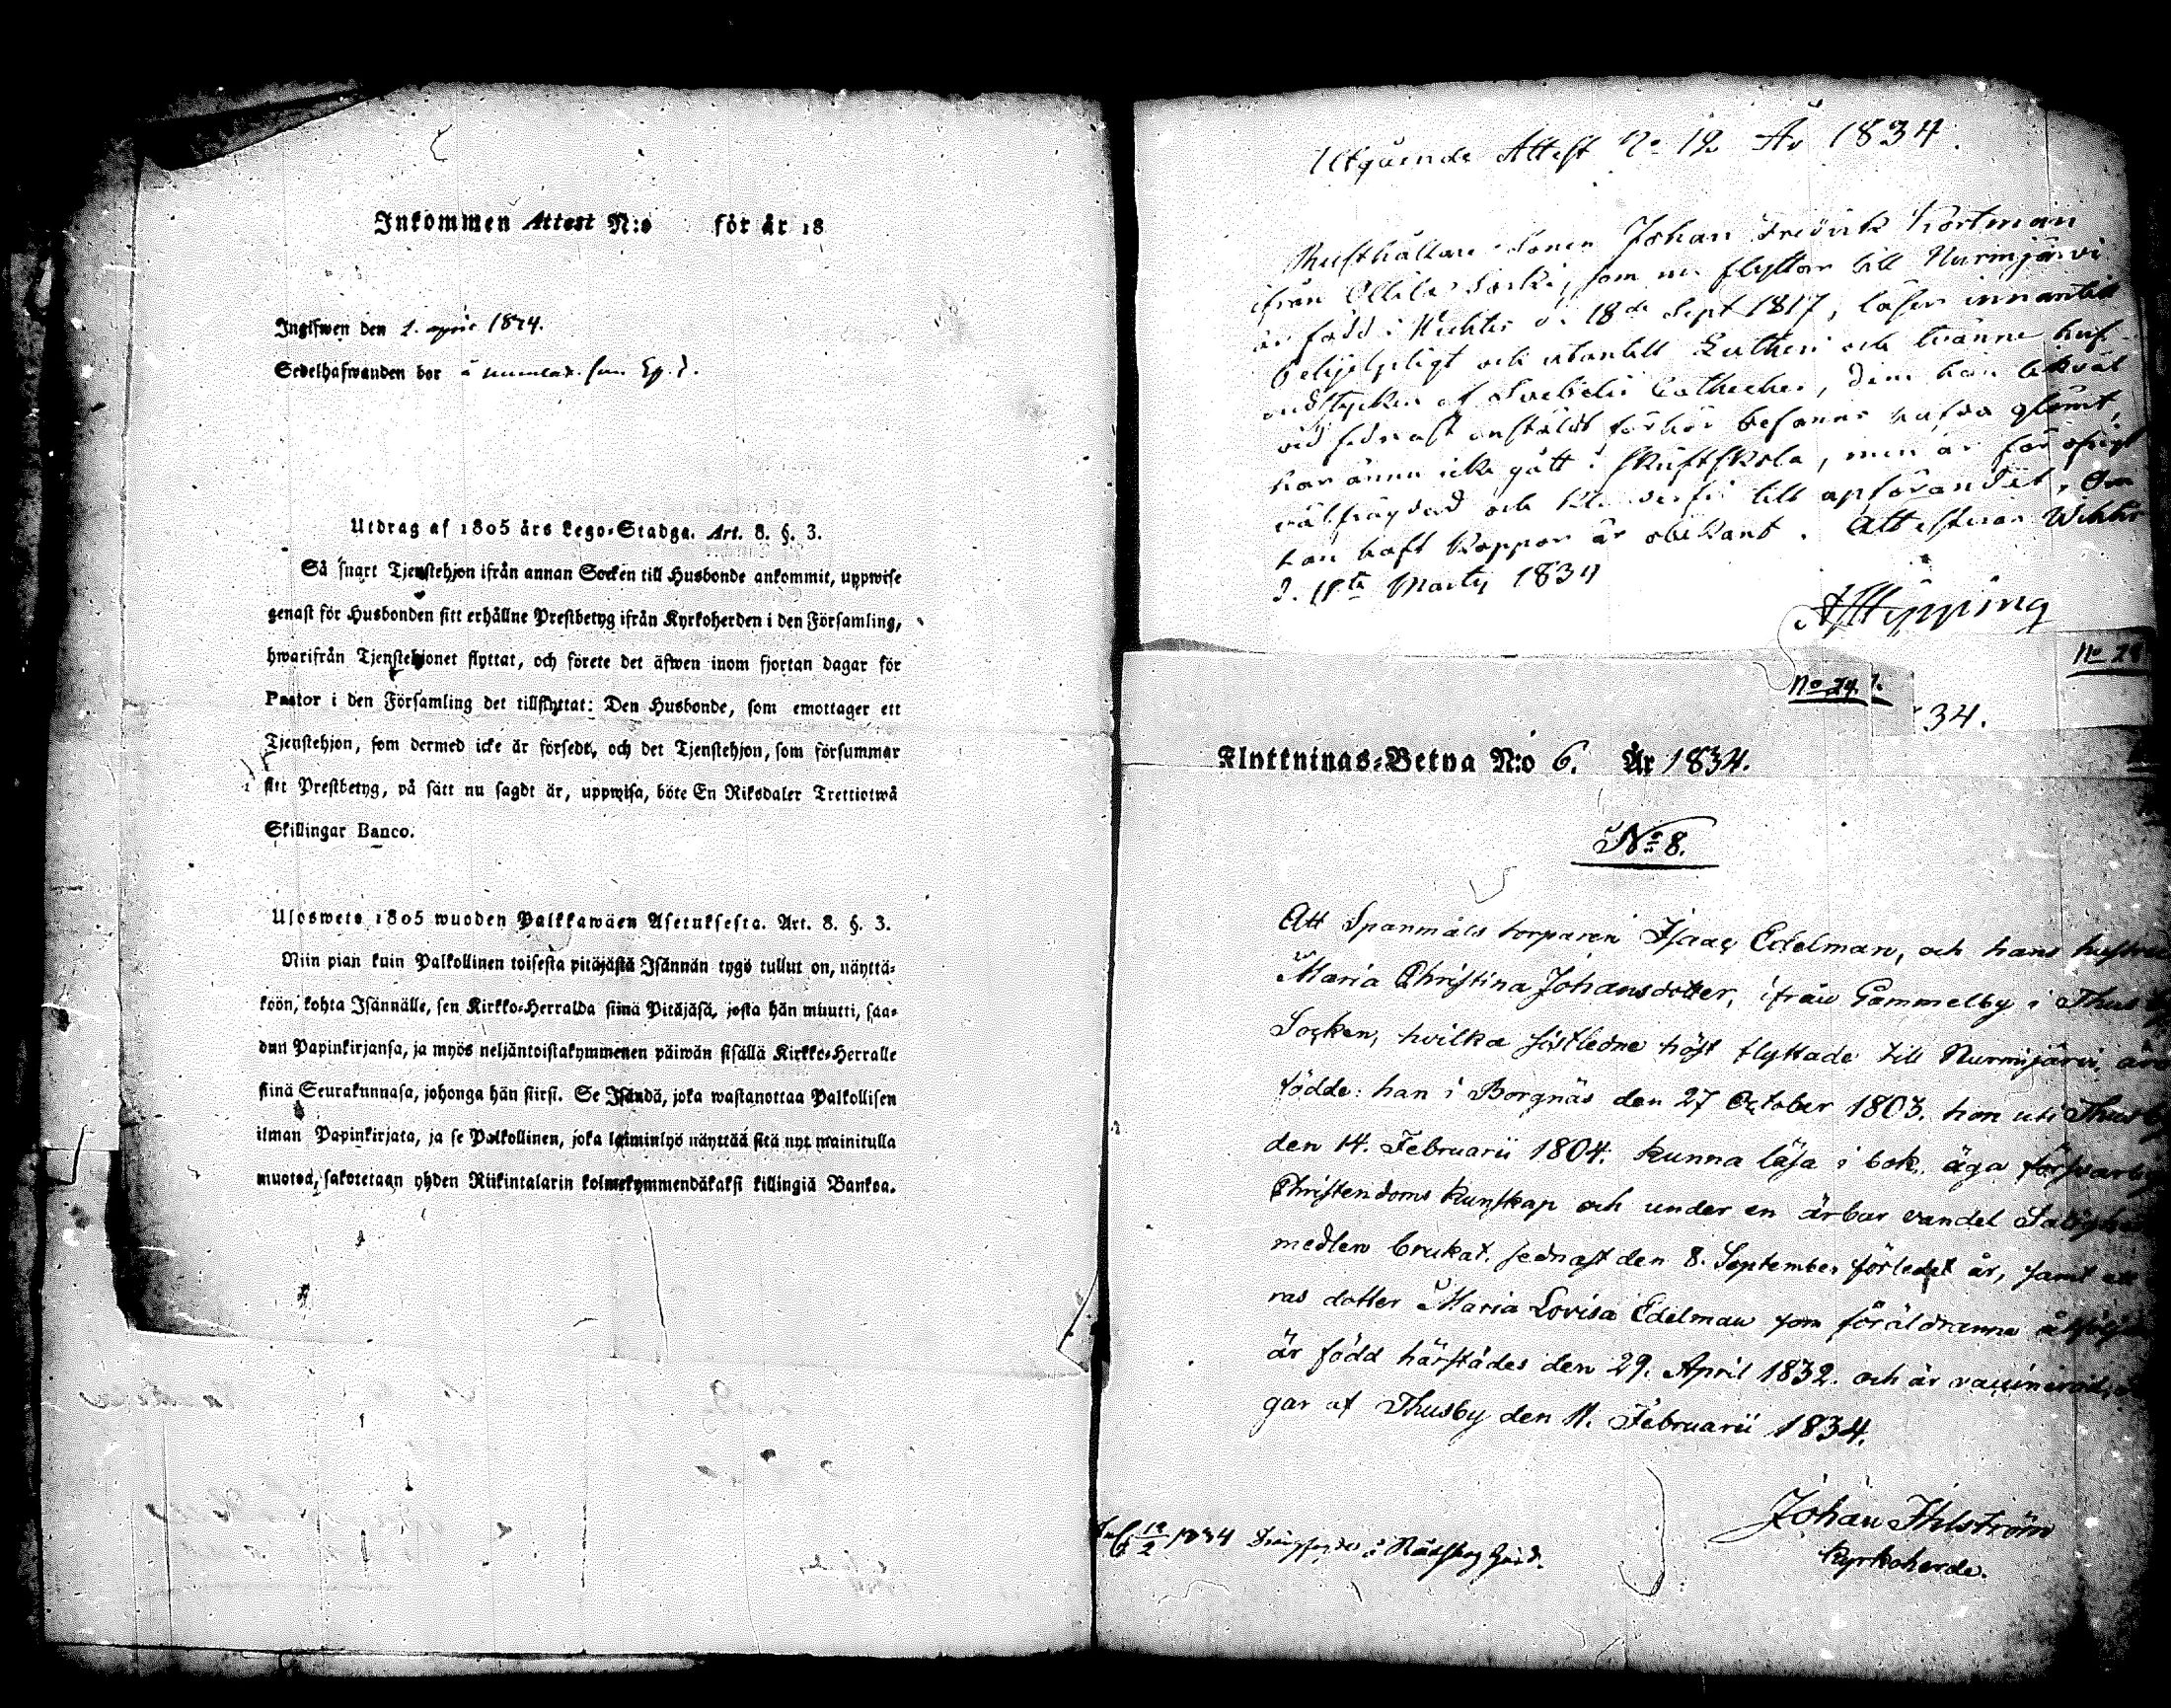 Inkommen Attest N:o för år 18
Inglfwen den 2. april 1834.
Sedelhafwanden bor å
Utdrag af 1805 års Lego-Stadga. Art. 8. §. 3.
Så snart Tjenstehjon ifrån annan Socken till Husbonde ankommit, uppwise
genast för Husbonden sitt erhållne Prestbetyg ifrån Kyrkoherden i den Församling,
hwarifrån Tjenstehjonet flyttat, och förete det äfwen inom fjortan dagar för
Pastor i den Församling det tillflyttat: Den Husbonde, som emottager ett
Tjenstehjon, som dermed icke är försedt, och det Tjenstehjon, som försummar
sitt Prestbetyg, på sätt nu sagdt är, uppwisa, böte En Riksdaler Trettiotwå
Skillingar Banco.
Ulosweto 1805 wuoden Palkkawäen Asetuksesta. Art. 8. §. 3.
Niin pian kuin Palkollinen toisesta pitäjästä Isännän tygö tullut on, näyttä-
köön, kohta Isännälle, sen Kirkko-Herralda siinä Pitäjäsä, josta hän muutti, saa-
dun Papinkirjansa, ja myös neljäntoistakymmenen päiwän sisällä Kirkko-Herralle
siinä Seurakunnasa, johonga hän siirsi. Se Isändä, joka wastanottaa Palkollisen
ilman Papinkirjata, ja se Palkollinen, joka laiminlyö näyttää sitä nyt mainitulla
muotoa, sakotetaan yhden Riikintalarin kolmekymmendäkaksi killingiä Bankoa.
Utgående Attest No 12 År 1834.
Rusthållare Sonen Johan Fredrik Kortman
ifrån Ollila Sorki, som nu flyttar till Nurmijärvi
är född i Wichtis d. 18de Sept 1817, läser innantill
behjelpligt och utantill Lutheri och tvänne huf-
vudstycken af Svebelii Catheches, dem han likväl
vid sednast anstäldt förhör befanns hafva glömt,
har ännu icke gått i skriftskola, men är för öfrigt
välfrägdad och till uppförandet. Om
han haft koppor är obekant. Attesterar Wichtis
d. 18te Martij 1834
No 24. 1.
34.
Flyttnings-Betyg N:o 6. År 1834.
No 8.
Att Spanmåls torparen Isaac Edelman, och hans hustru
Maria Christina Johansdotter, ifrån Gammelby i Thusby
Socken, hvilka sistledne höst flyttade till Nurmijärvi, äro
födde: han i Borgnäs den 27 October 1803. hon uti Thusby
den 14. Februarii 1804. kunna läsa i bok, äga försvarlig
Christendoms kunskap och under en ärbar vandel Salighets
medlen brukat, sednast den 8. September förledet år, samt att
ras dotter Maria Lovisa Edelman som föräldrarne åtföljer
är född härstädes den 29. April 1832. och är vaccinerad,
gar af Thusby den 11. Februarii 1834.
Johan Ihlström
Kyrkoherde.